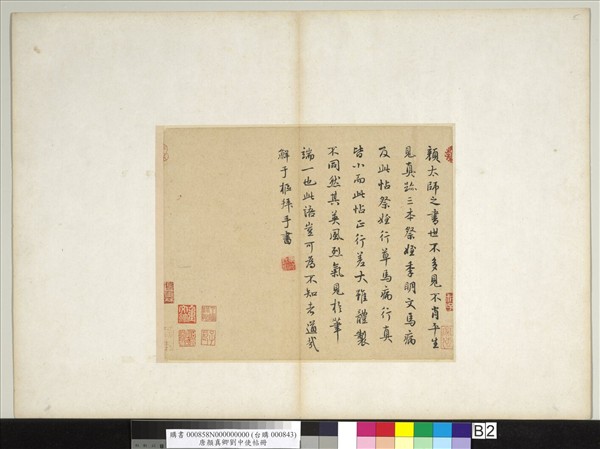 顏太師之書世不多見不肖平生
見真跡三本祭姪季明文馬病
及此帖祭姪行草馬病行真
皆小而此帖正行差大雖體製
不同然其英風烈氣見於筆
端一也此語豈可為不知者道哉
鮮于樞拜手書
購書 000858N000000000 (台購 000843)
唐顏真卿劉中使帖冊
B2